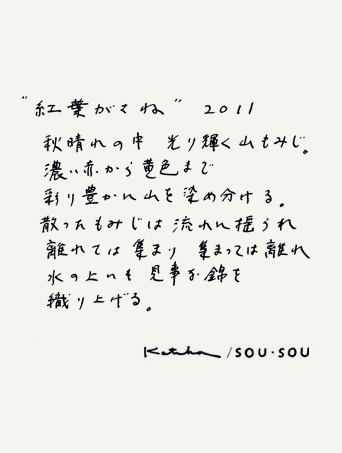 "紅葉がさね" 2011
秋晴れの中 光り輝く山もみじ。
濃い赤から黄色まで
彩り豊かに山を染め分ける。
散ったもみじは流れに揺られ
離れては集まり 集まっては離れ
水の上にも見事な錦を
織り上げる。
Katsuji /SOU・SOU